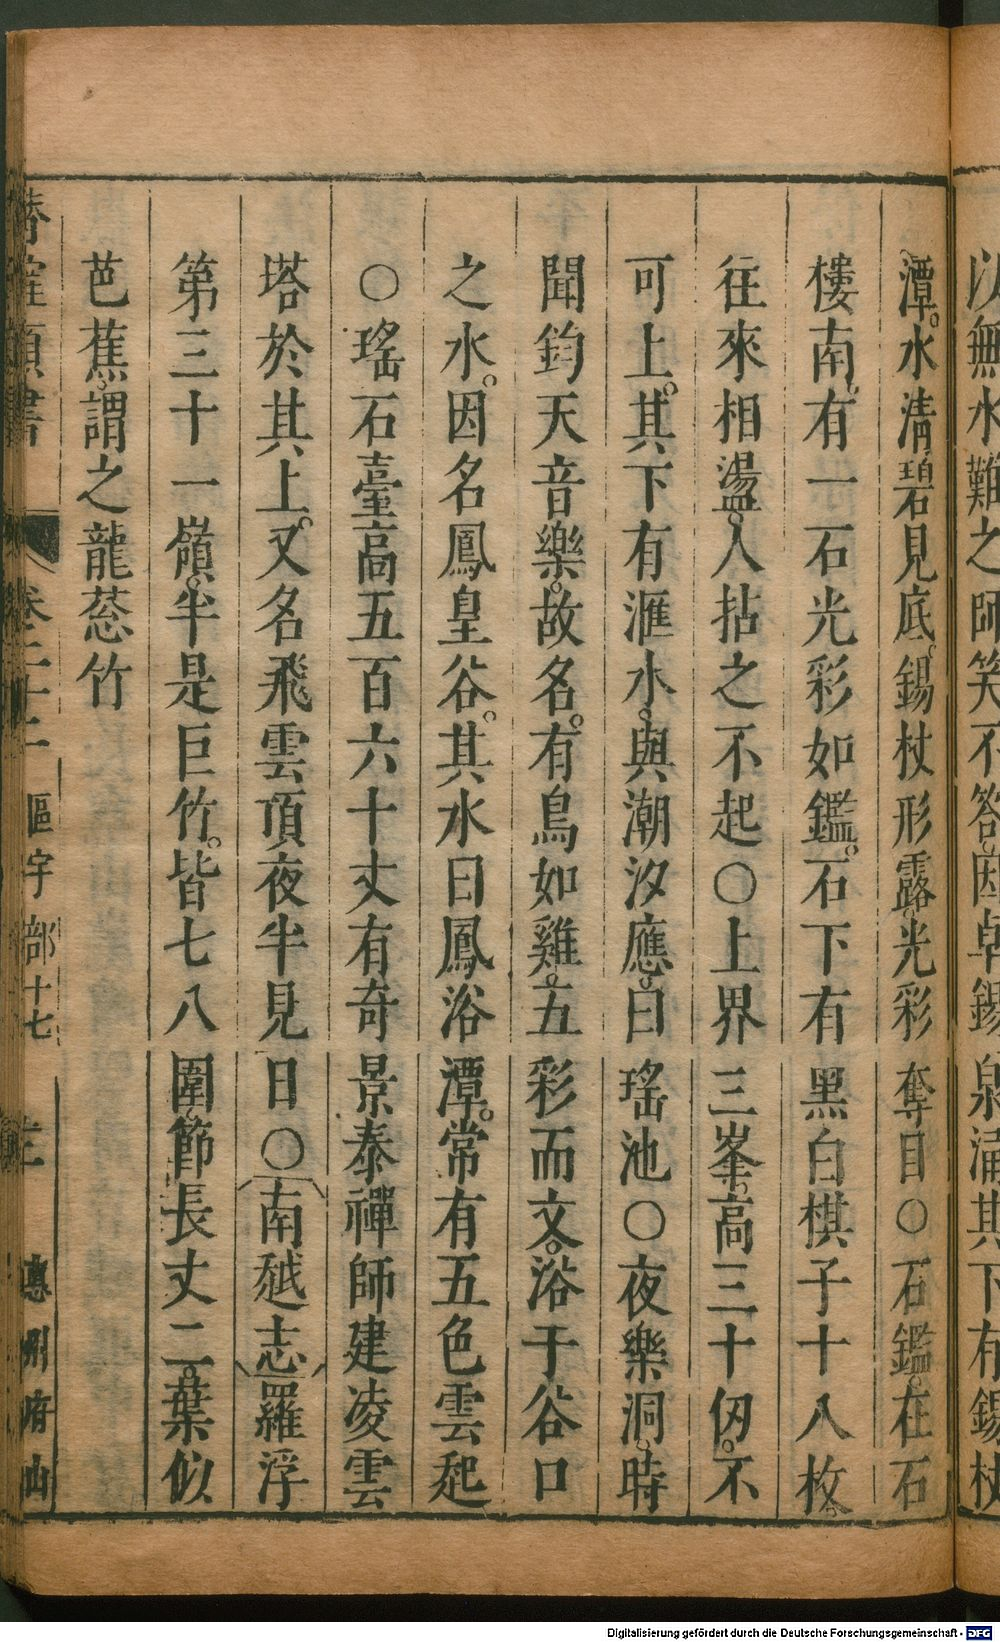 以無水難之師笑不答因卓錫泉涌其下有錫杖
潭。水清碧見底。錫杖形露。光彩奪目○石鑑。在石
樓南。有一石光彩如鑑。石下有黑白棋子十八枚。
往來相盪。人拈之不起○上界三峯。高三十仞。不
可上。其下有滙水。與潮汐應。曰瑤池○夜樂洞。時
聞鈞天音樂。故名。有鳥如雞。五彩而文。浴于谷口
之水。因名鳳皇谷。其水曰鳳浴潭。常有五色雲起
○瑤石臺高五百六十丈有奇景泰禪師建凌雲
塔於其上。又名飛雲頂夜半見日○南越志羅浮
第三十一嶺。半是巨竹。皆七八圍。節長丈二。葉似
芭蕉。謂之龍葱竹
潛確類書 卷二十二 區宇部十七 惠州府山
Digitalisierung gefördert durch die Deutsche Forschungsgemeinschaft - DFG